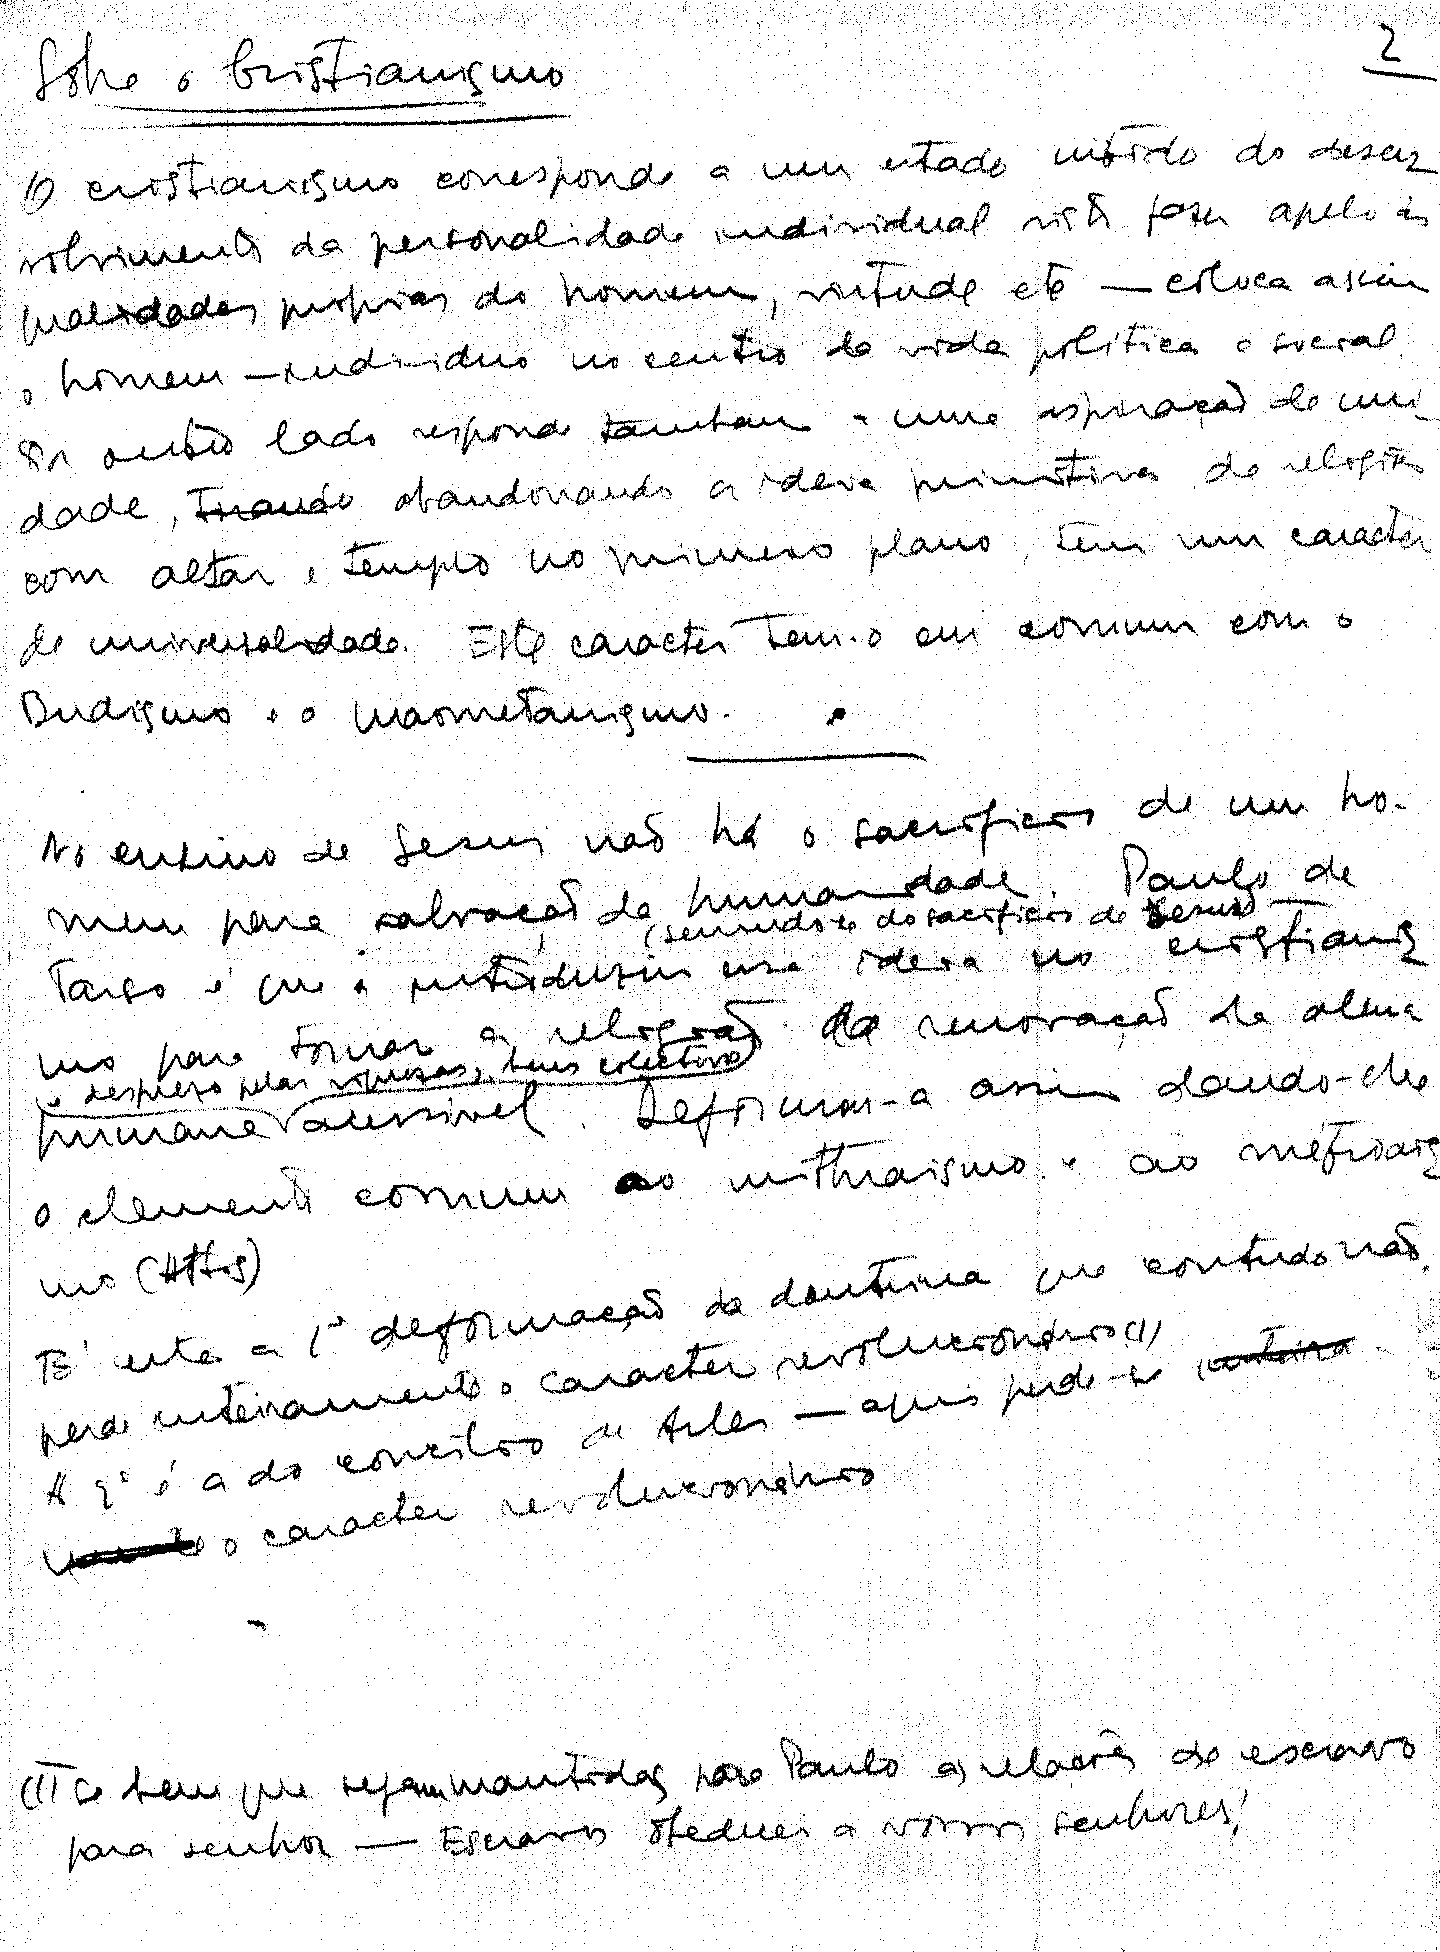 2
Sobre o Cristianismo
O cristianismo corresponde a um estado nitido do desen
volvimento da personalidade individual visto fazer apelo às
qualidades proprias do homem, virtude etc — coloca assim
o homem — individuo no centro da vida politica e social.
Por outro lado responde tambem a uma aspiração de uni-
dade, tirando abandonando a ideia primitiva de religião
com altar e templo no primeiro plano, tem um caracter
de universalidade. Este caracter tem-o em comum com o
Budismo e o maometanismo.
No ensino de Jesus não há o sacrificio de um ho-
mem para salvação da humanidade. Paulo de
(servindo-se do sacrificio de Jesus)
Tarso é que introduziu essa ideia no cristianis
mo para tornar a religião da renovação da alma
e desprezo pelas riquezas, bens colectivos
humana acessivel. Deformou-a assim dando-lhe
o elemento comum ao mithraismo e ao
mo (Attis)
É esta a 1ª deformação da doutrina que contudo não
perde inteiramente o caracter revolucionário (1)
A 2ª é a do concilio de Arles — aqui perde-se inteira
mente o caracter revolucionário
(1) Se bem que sejam mantidas para Paulo as relações de escravo
para senhor — Escravos obedecei a vossos senhores!